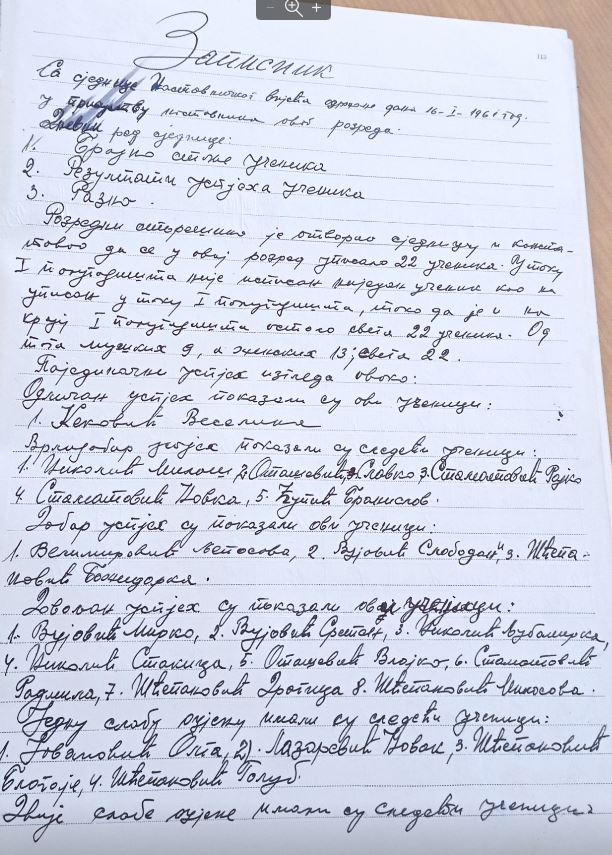 113
Записник
Са сједнице Наставничког вијећа одржане дана 16-I-1961 год.
у присуству наставника овог розреда.
Дневни ред сједнице:
1. Бројно стање ученика
2. Резултати успјеха ученика
3. Разно.
Розредни старешина је отворио сједницу и конста-
товао да се у овај розред уписало 22 ученика. У току
I полугодишта није исписан ниједан ученик као ни
уписан у току I полугодишта, тако да је и на
крају I полугодишта остало света 22 ученика. Од
тога мушких 9, а женских 13, света 22.
Појединачни успјех изгледа овако:
Одличан успјех показали су ови ученици:
1. Кековић Веселинка
Врлодобар успјех показали су следећи ученици:
1. Николић Милош 2. Оташевић Славко 3. Стаматовић Рајко
4. Стаматовић Новка, 5. Ћупић Бранислав.
Добар успјех су показали ови ученици:
1. Велимировић Љепосава, 2. Вујовић Слободан, 3. Шћепа-
новић Божидарка.
Довољан успјех су показали ови ученици:
1. Вујовић Мирко, 2. Вујовић Сретан, 3. Николић Љубомирка,
4. Николић Стакица, 5. Оташевић Влајко, 6. Стаматовић
Радмила, 7. Шћепановић Драгица 8. Шћепановић Микосава.
Једну слабу оцјену имали су следећи ученици:
1. Јовановић Олга, 2. Лазаревић Новак, 3. Шћепановић
Благоје, 4. Шћепановић Голуб.
Двије слабе оцјене имали су следећи ученици: